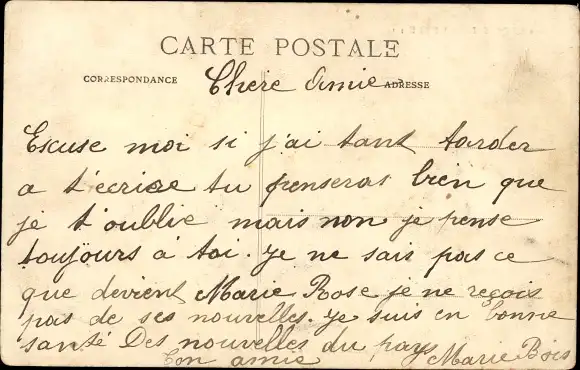 CARTE POSTALE
CORRESPONDANCE
ADRESSE
Chere Amie
Escuse moi si j'ai tant tarder
a t'ecrire tu penseras bien que
je t'oublie mais non je pense
toujours a toi. je ne sais pas ce
que devient Marie Rose je ne reçois
pas de ses nouvelles. je suis en bonne
santé Des nouvelles du pays
Ton amie Marie Bois